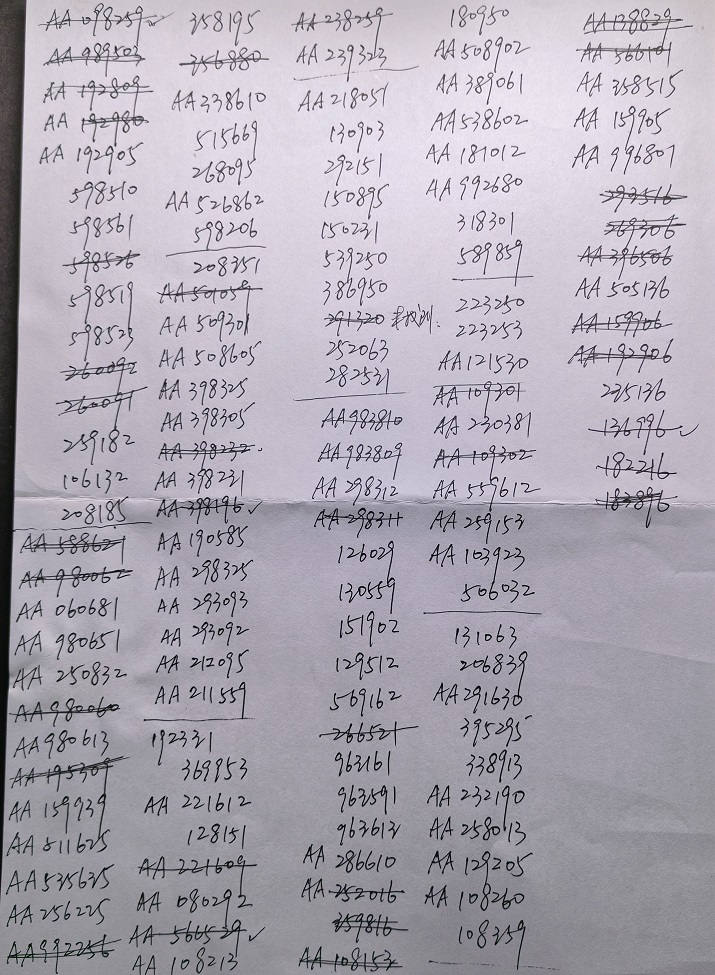 AA 098259 ✓
AA 989503
AA 192809
AA 192980
AA 192905
598510
598561
598526
598519
598523
260092
260091
259182
106132
208185
AA 588621
AA 980062
AA 060681
AA 980651
AA 250832
AA 980060
AA 980613
AA 195309
AA 159939
AA 511625
AA 535635
AA 256225
AA 992256
358195
356880
AA 338610
515669
268095
AA 526862
598206
208351
AA 501059
AA 509301
AA 508605
AA 398325
AA 398305
AA 398232
AA 398231
AA 398196 ✓
AA 190585
AA 298325
AA 293093
AA 293092
AA 212095
AA 211559
192331
369953
AA 221612
128151
AA 221609
AA 080292
AA 566529 ✓
AA 108213
AA 238259
AA 239323
AA 218051
130903
292151
150895
150231
539250
386950
291320
252063
282531
AA 983810
AA 983809
AA 298312
AA 298311
126029
130559
151902
129512
569162
266521
963161
963591
963613
AA 286610
AA 252016
359816
AA 108153
180950
AA 508902
AA 389061
AA 538602
AA 181012
AA 992680
318301
589859
223250
223253
AA 121530
AA 109301
AA 230381
AA 109302
AA 559612
AA 259153
AA 103923
506032
131063
206839
AA 291630
395295
338913
AA 232190
AA 258013
AA 129205
AA 108260
108359
AA 138829
AA 566101
AA 358515
AA 159905
AA 996807
293516
269306
AA 396506
AA 505136
AA 159906
AA 192906
235136
136996 ✓
182216
183896